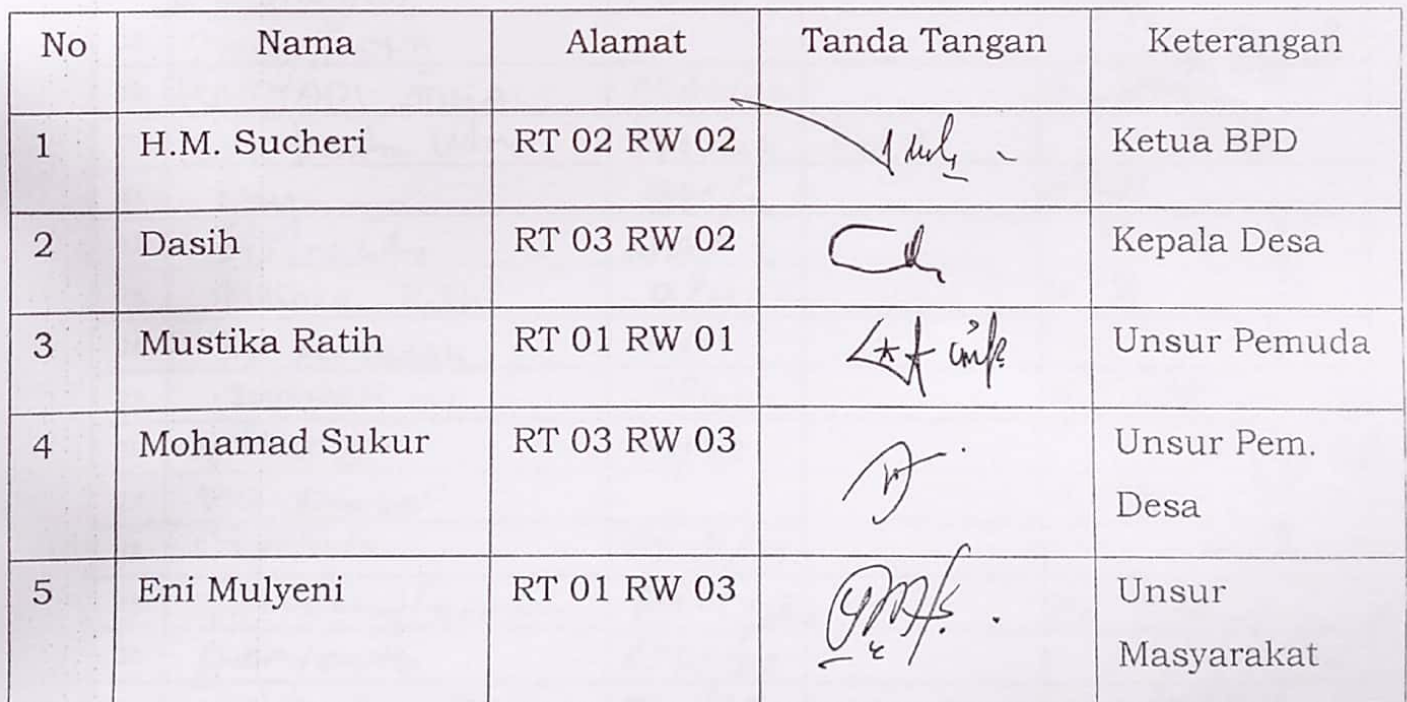 No Nama Alamat Tanda Tangan Keterangan
1 H.M. Sucheri RT 02 RW 02 Ketua BPD
2 Dasih RT 03 RW 02 Kepala Desa
3 Mustika Ratih RT 01 RW 01 Unsur Pemuda
4 Mohamad Sukur RT 03 RW 03 Unsur Pem.
Desa
5 Eni Mulyeni RT 01 RW 03 Unsur
Masyarakat